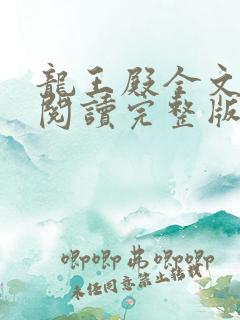 龍王殿全文
閱讀完整版
唧唧弗唧唧
未經同意禁止轉載